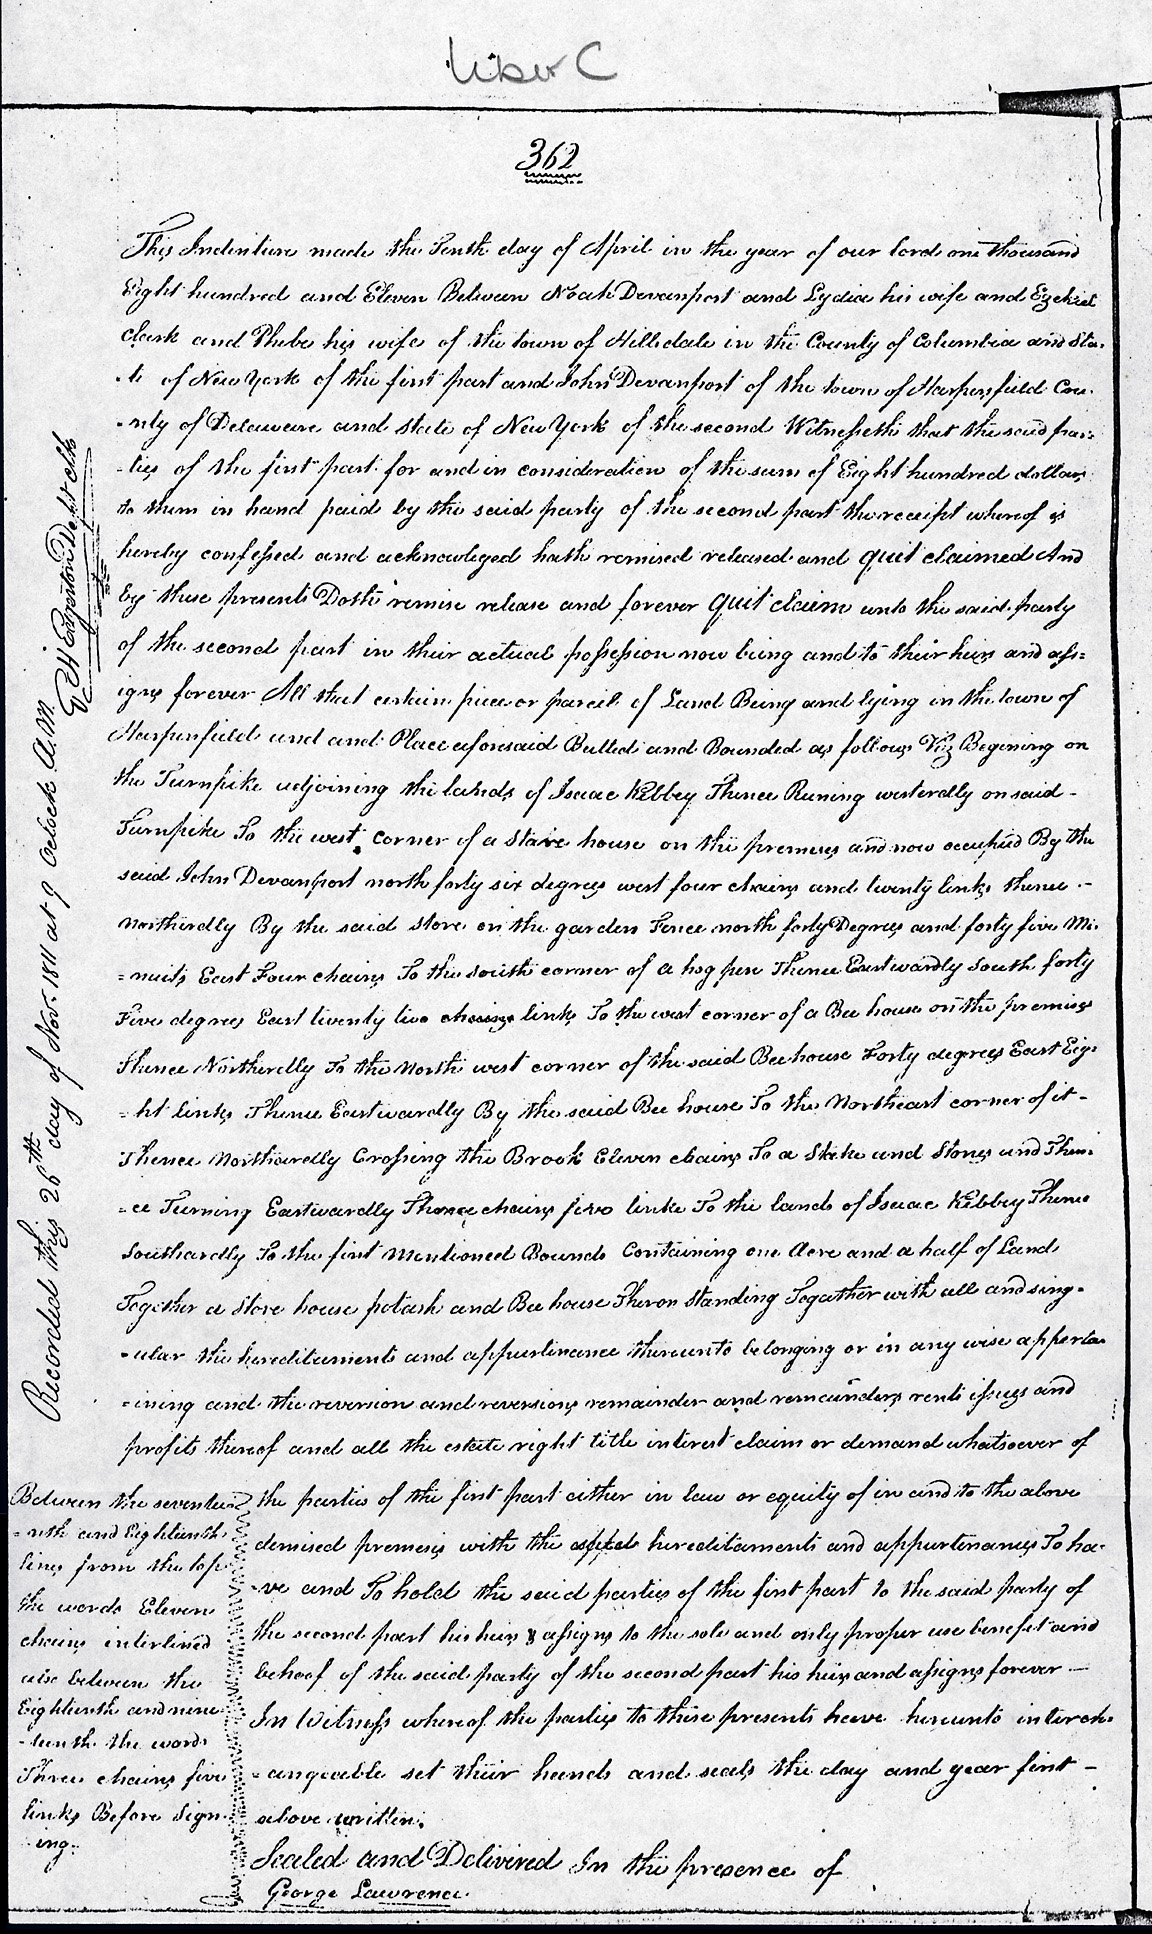 Liber C
362
This Indenture made the Tenth day of April in the year of our lord one thousand
Eight hundred and Eleven Between Noah Devanport and Lydia his wife and Ezekiel
Clark and Phebe his wife of the town of Hillsdale in the County of Columbia and Sta-
-te of New York of the first part and John Devanport of the town of Harpersfield Cou-
-nty of Delaware and state of New York of the second Witnesseth that the said par-
-ties of the first part for and in consideration of the sum of Eight hundred dollars
to them in hand paid by the said party of the second part the receipt whereof is
hereby confessed and acknowleged hath remised released and quit claimed And
by these presents Doth remise release and forever quit claim unto the said party
of the second part in their actual possession now being and to their heirs and ass=
igns forever All that certain piece or parcel of Land Being and lying in the town of
Harpersfield and and Place aforesaid Butted and Bounded as follows Viz Begining on
the Turnpike adjoining the lands of Isaac Kibbey Thence Runing westerdly on said -
Turnpike To the west corner of a Store house on the premises and now occupied By the
said John Devanport north forty six degrees west four chains and twenty links thence -
northerdly By the said store on the garden Fence north forty Degrees and forty five Mi-
=nuits East Four chains To the south corner of a hog pen Thence Eastwardly South forty
Five degrees East twenty two links To the west corner of a Bee house on the premises
Thence Northerdly To the North west corner of the said Bee house Forty degrees East Eig-
-ht links Thence Eastwardly By the said Bee house To the Northeast corner of it -
Thence Northardly Crossing the Brook Eleven chains To a Stake and Stones and Then-
=ce Turning Eastwardly Three chains five links To the lands of Isaac Kibbey Thence
Southardly To the first Mentioned Bounds Containing one Acre and a half of Land
Together a Store house potash and Bee house Theron Standing Together with all and sing-
-ular the hereditaments and appurtinance thereunto belonging or in any wise apperta-
=ining and the reversion and reversions remainder and remainders rents issues and
profits thereof and all the estate right title interest claim or demand whatsoever of
the parties of the first part either in law or equity of in and to the above
demised premises with the hereditaments and appurtenances To ha-
-ve and To hold the said parties of the first part to the said party of
the second part his heirs & assigns to the sole and only proper use benefit and
behoof of the said party of the second part his heirs and assigns forever -
In Witness whereof the parties to these presents have hereunto interch-
-angeable set their hands and seals the day and year first -
above written.
Sealed and Delivered In the presence of
George Lawrence
Between the seventee
-nth and Eighteenth
lines from the top
the words Eleven
chains interlined
also between the
Eighteenth and nine
-teenth the words
Three chains five
links Before Sign-
ing.
Recorded this 26th day of Nov. 1811 at 9 Oclock A.M.
Dept Clk